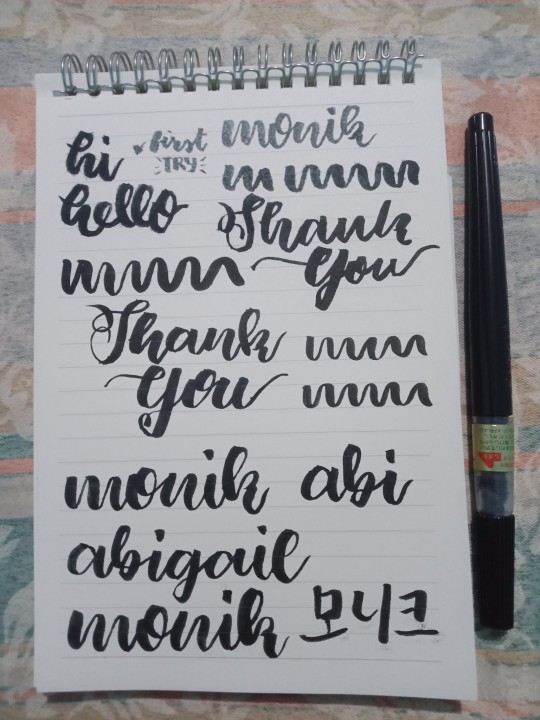 hi
first
TRY
monik
hello
Thank
You
Thank
You
monik abi
abigail
monik 모니크